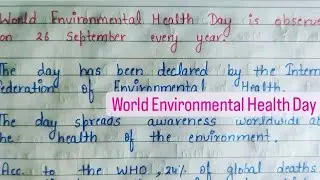 World Environmental Health Day is observe
on 26 September every year.
The day has been declared by the Intern
Federation of Environmental Health.
World Environmental Health Day
The day spreads awareness worldwide ab
the health of the environment.
Acc. to the WHO, 24% of global deaths